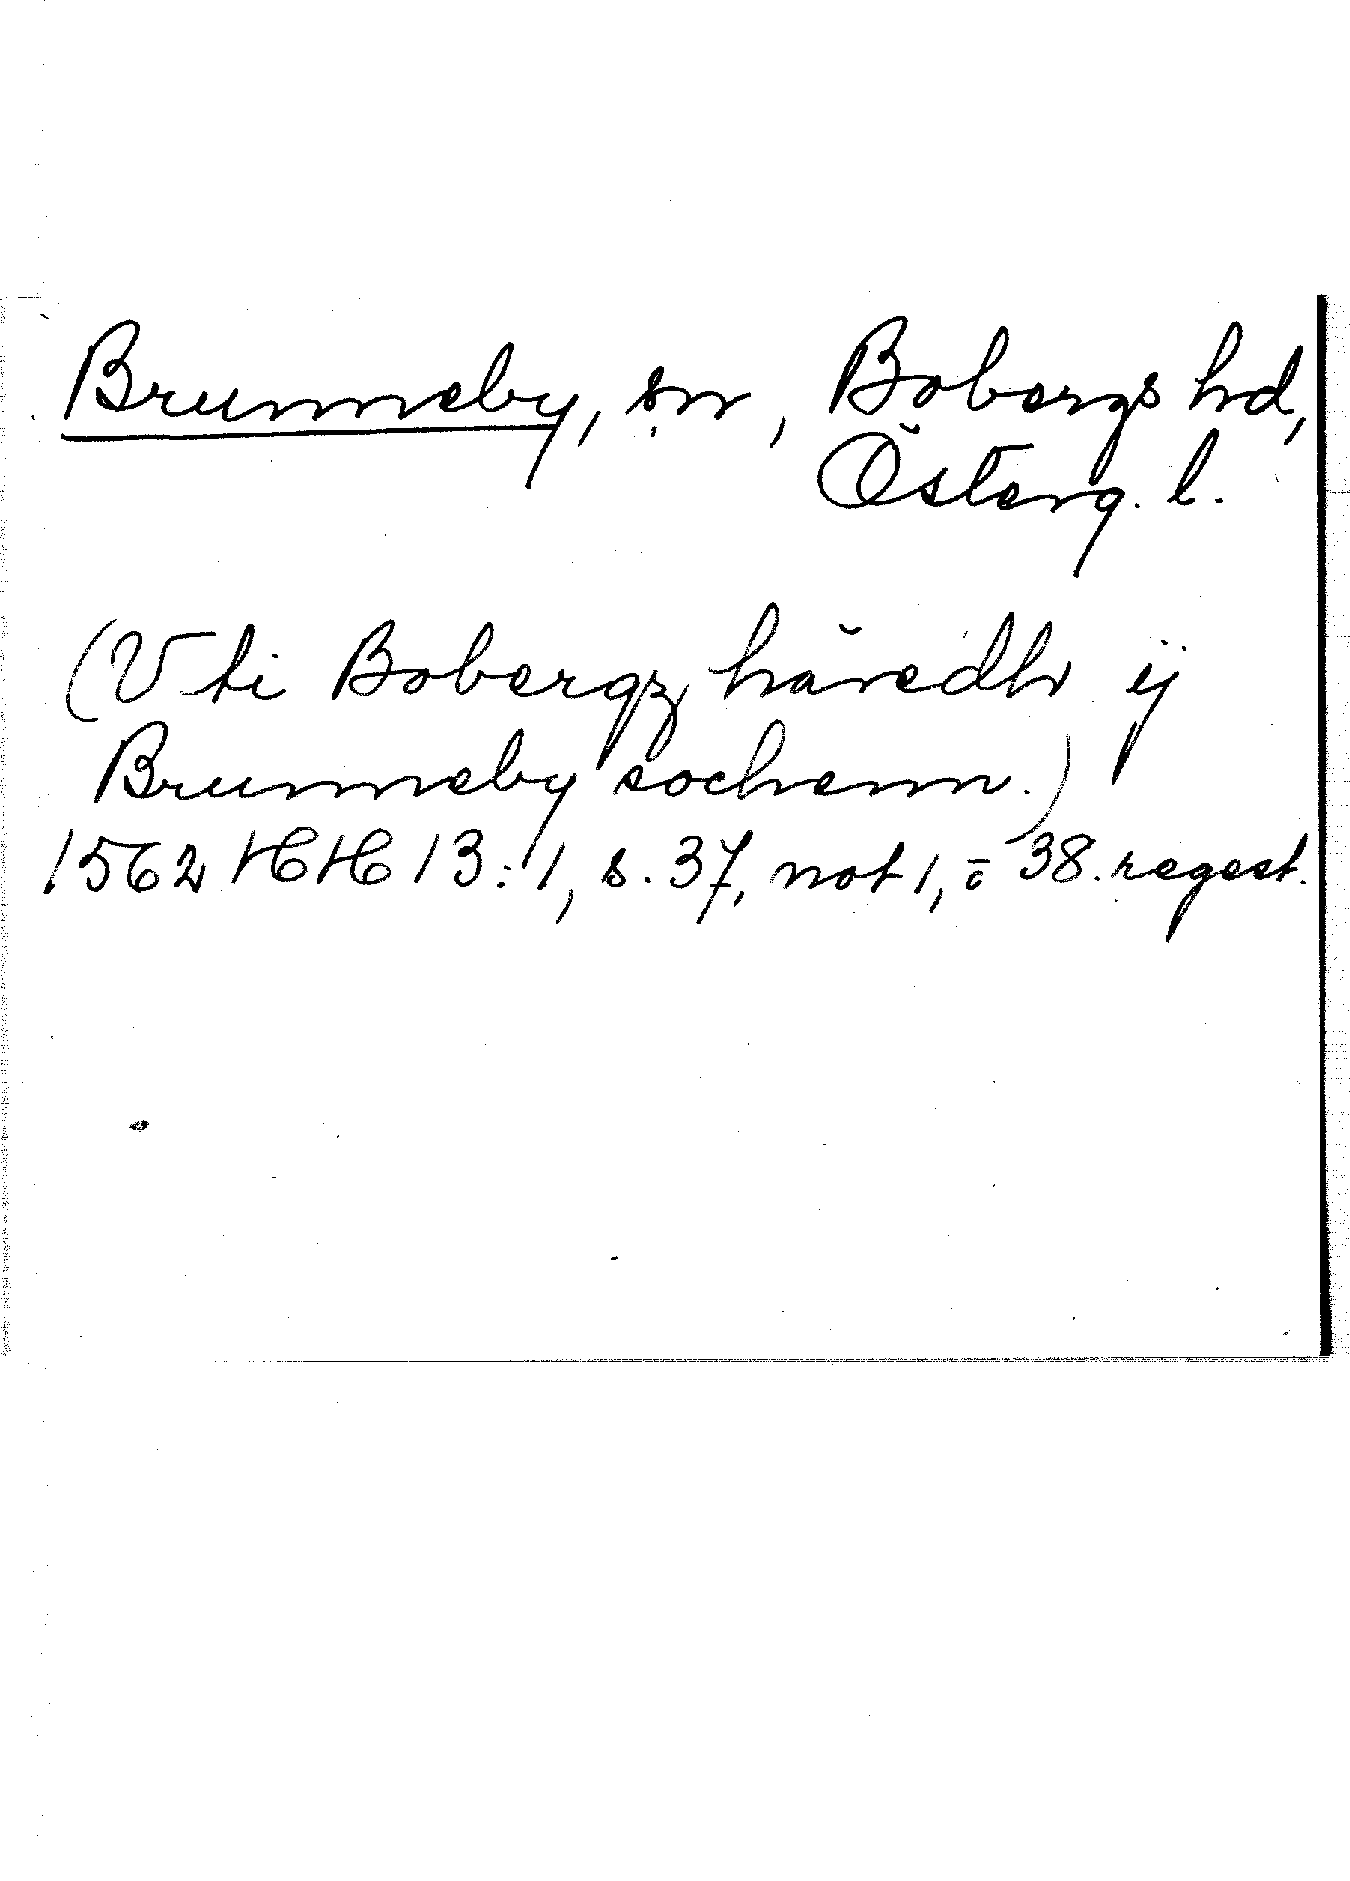 Brunneby, sn, Bobergs hd,
Österg. l.
(Vti Bobergz häredh ij
Brunneby sochenn.)
1562 HH 13:1, s. 37, not 1, o 38. regest.